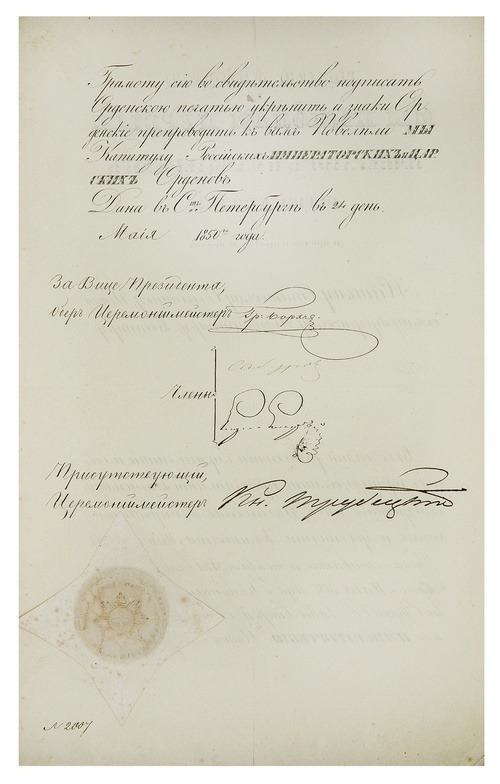 Грамоту сію во свидѣтельство подписать
Орденскою печатью укрѣпить и знаки Ор-
денскіе препроводить къ вамъ Повелѣли МЫ
Капитулу Россійскихъ ИМПЕРАТОРСКИХЪ и ЦАР
СКИХЪ Орденовъ
Дана въ С.тъ Петербургѣ въ 24 день
Маія 1850го года.
За Вице Президента,
оберъ Церемоніймейстеръ Гр. Борхъ.
Члены:
Присутствующій,
Церемоніймейстеръ Кн. Трубецкой
N 2007